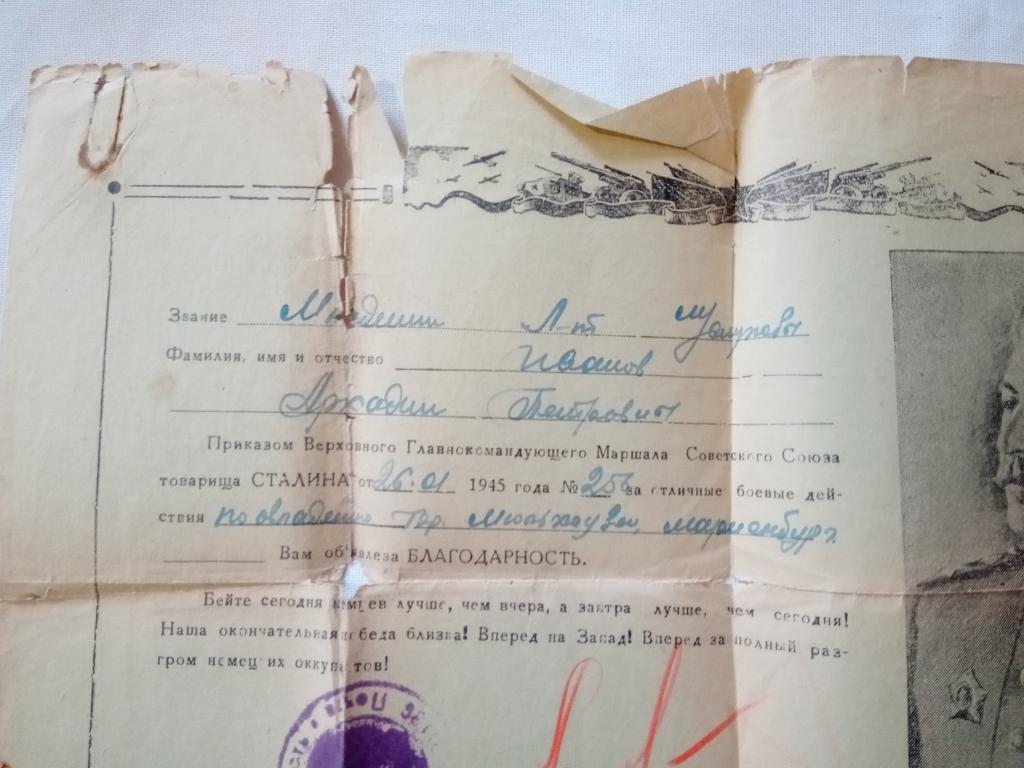 Звание Младший Л-т
Фамилия, имя и отчество Иванов
Аркадии Петрович
Приказом Верховного Главнокомандующего Маршала Советского Союза
товарища СТАЛИНА от 26.01 1945 года № 256 за отличные боевые дей-
ствия по овладению гор. Мюльхаузен, Мариенбург
Вам объявлена БЛАГОДАРНОСТЬ.
Бейте сегодня немцев лучше, чем вчера, а завтра лучше, чем сегодня!
Наша окончательная победа близка! Вперед на Запад! Вперед за полный раз-
гром немецких оккупантов!